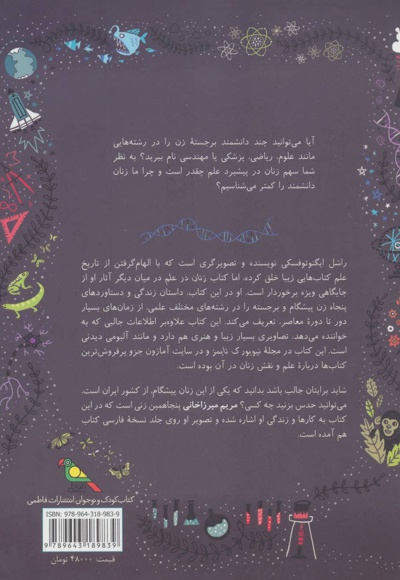 آیا می‌توانید چند دانشمند برجستهٔ زن را در رشته‌هایی
مانند علوم، ریاضی، پزشکی یا مهندسی نام ببرید؟ به نظر
شما سهم زنان در پیشبرد علم چقدر است و چرا ما زنان
دانشمند را کمتر می‌شناسیم؟
راشل ایگنوتوفسکی نویسنده و تصویرگری است که با الهام‌گرفتن از تاریخ
علم کتاب‌هایی زیبا خلق کرده. اما کتاب زنان در علم در میان دیگر آثار او از
جایگاهی ویژه برخوردار است. او در این کتاب، داستان زندگی و دستاوردهای
پنجاه زن پیشگام و برجسته را در رشته‌های مختلف علمی، از زمان‌های بسیار
دور تا دورهٔ معاصر، تعریف می‌کند. این کتاب علاوه‌بر اطلاعات جالبی که به
خواننده می‌دهد، تصاویری بسیار زیبا و هنری هم دارد و مانند آلبومی دیدنی
است. این کتاب در مجلهٔ نیویورک تایمز و در سایت آمازون جزو پرفروش‌ترین
کتاب‌ها دربارهٔ علم و نقش زنان در آن بوده است.
شاید برایتان جالب باشد بدانید که یکی از این زنان پیشگام، از کشور ایران است.
می‌توانید حدس بزنید چه کسی؟ مریم میرزاخانی پنجاهمین زنی است که در این
کتاب به کارها و زندگی او اشاره شده و تصویر او روی جلد نسخهٔ فارسی کتاب
هم آمده است.
کتاب کودک و نوجوان انتشارات فاطمی
ISBN: 978-964-318-983-9
9 789643 189839
قیمت: ۴۸۰۰۰ تومان